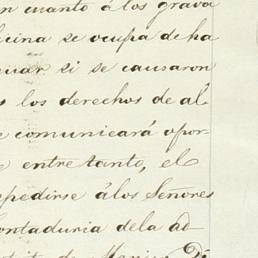 n cuanto á los grava
icina se ocupa de ha
uar si se causaron
s los derechos de al
e comunicará opor
e entre tanto, el
pedirse álos Señores
ontaduria dela ad
de